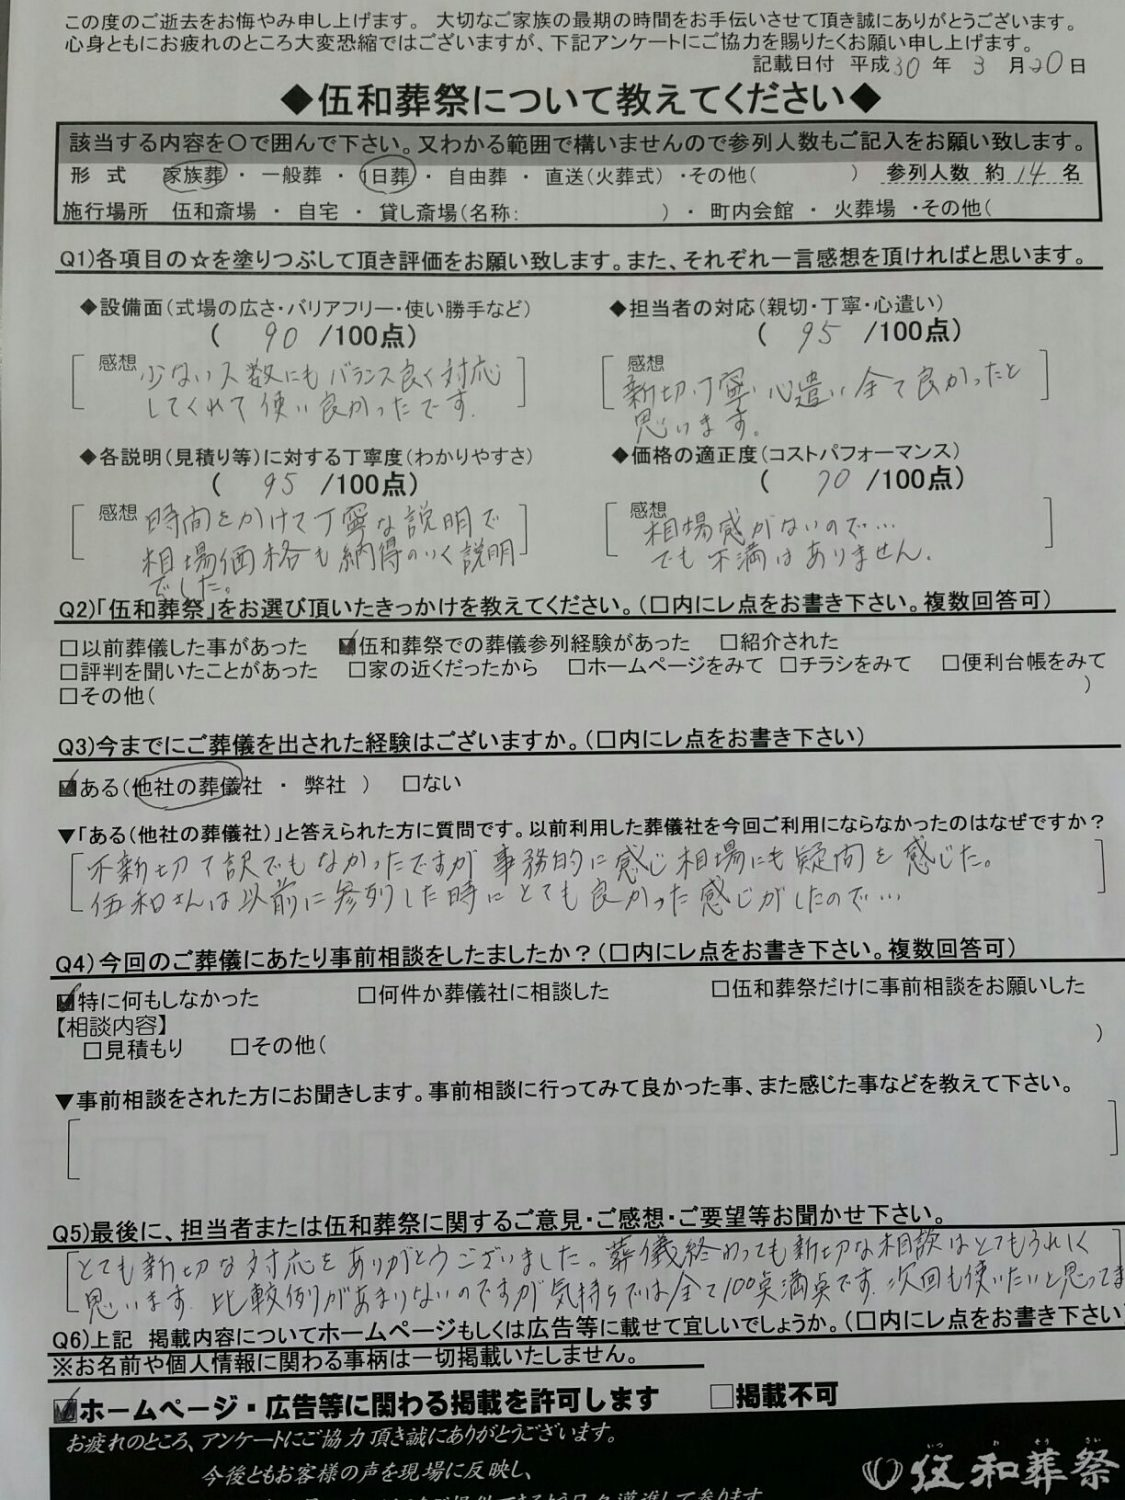 この度のご逝去をお悔やみ申し上げます。 大切なご家族の最期の時間をお手伝いさせて頂き誠にありがとうございます。
心身ともにお疲れのところ大変恐縮ではございますが、下記アンケートにご協力を賜りたくお願い申し上げます。
記載日付 平成30年 3月20日
◆伍和葬祭について教えてください◆
該当する内容を〇で囲んで下さい。又わかる範囲で構いませんので参列人数もご記入をお願い致します。
形 式 家族葬 ・ 一般葬 ・ 1日葬 ・ 自由葬 ・ 直送(火葬式) ・その他( ) 参列人数 約 14 名
施行場所 伍和斎場 ・ 自宅 ・ 貸し斎場(名称: ) ・ 町内会館 ・ 火葬場 ・その他(
Q1)各項目の☆を塗りつぶして頂き評価をお願い致します。また、それぞれ一言感想を頂ければと思います。
◆設備面(式場の広さ・バリアフリー・使い勝手など)
( 90 /100点)
感想 少ない人数にもバランス良く対応
してくれて使い良かったです.
◆担当者の対応(親切・丁寧・心遣い)
( 95 /100点)
感想
新切、丁寧、心遣い全て良かったと
思います。
◆各説明(見積り等)に対する丁寧度(わかりやすさ)
( 95 /100点)
感想 時間をかけて丁寧な説明で
相場価格も納得のいく説明
でした。
◆価格の適正度(コストパフォーマンス)
( 70 /100点)
感想
相場感がないので…
でも不満はありません.
Q2)「伍和葬祭」をお選び頂いたきっかけを教えてください。(□内にレ点をお書き下さい。複数回答可)
□以前葬儀した事があった ☑伍和葬祭での葬儀参列経験があった □紹介された
□評判を聞いたことがあった □家の近くだったから □ホームページをみて □チラシをみて □便利台帳をみて
□その他( )
Q3)今までにご葬儀を出された経験はございますか。(□内にレ点をお書き下さい)
☑ある(他社の葬儀社 ・ 弊社 ) □ない
▼「ある(他社の葬儀社)」と答えられた方に質問です。以前利用した葬儀社を今回ご利用にならなかったのはなぜですか?
不新切て訳でもなかったですが事務的に感じ相場にも疑問を感じた。
伍和さんは以前に参列した時にとても良かった感じがしたので…
Q4)今回のご葬儀にあたり事前相談をしましたか?(□内にレ点をお書き下さい。複数回答可)
☑特に何もしなかった □何件か葬儀社に相談した □伍和葬祭だけに事前相談をお願いした
【相談内容】
□見積もり □その他( )
▼事前相談をされた方にお聞きします。事前相談に行ってみて良かった事、また感じた事などを教えて下さい。
Q5)最後に、担当者または伍和葬祭に関するご意見・ご感想・ご要望等お聞かせ下さい。
とても新切な対応をありがとうございました。葬儀終わっても新切な相談はとてもうれしく
思います. 比較例があまりないのですが気持ちでは全て100点満点です. 次回も使いたいと思ってま
Q6)上記 掲載内容についてホームページもしくは広告等に載せて宜しいでしょうか。(□内にレ点をお書き下さい
※お名前や個人情報に関わる事柄は一切掲載いたしません。
☑ホームページ・広告等に関わる掲載を許可します □掲載不可
お疲れのところ、アンケートにご協力頂き誠にありがとうございます。
今後ともお客様の声を現場に反映し、
いつ わ そう さい
伍和葬祭